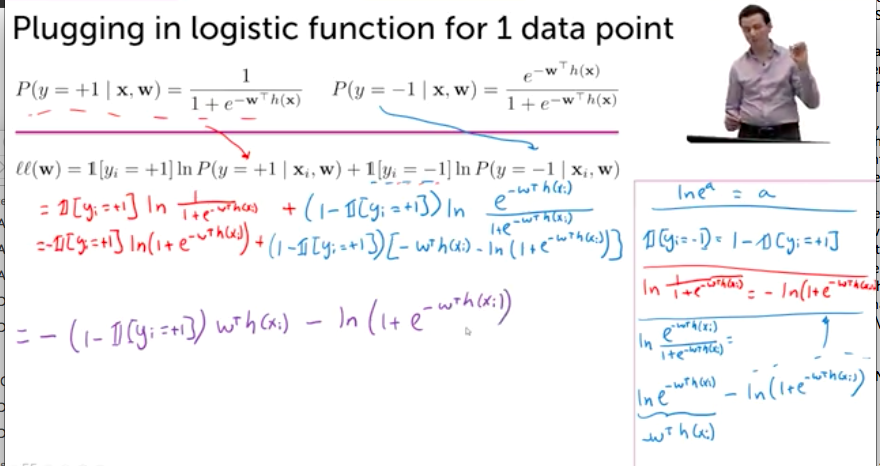 Plugging in logistic function for 1 data point
P(y = +1 | x, w) = 1 / (1 + e^{-w^⊤h(x)})    P(y = −1 | x, w) = e^{-w^⊤h(x)} / (1 + e^{-w^⊤h(x)})
ℓℓ(w) = 𝟙[y_i = +1] ln P(y = +1 | x_i, w) + 𝟙[y_i = −1] ln P(y = −1 | x_i, w)
= 𝟙[y_i = +1] ln 1 / (1 + e^{-w^⊤h(x_i)}) + (1 − 𝟙[y_i = +1]) ln e^{-w^⊤h(x_i)} / (1 + e^{-w^⊤h(x_i)})
= −𝟙[y_i = +1] ln(1 + e^{-w^⊤h(x_i)}) + (1 − 𝟙[y_i = +1]) [− w^⊤h(x_i) − ln(1 + e^{-w^⊤h(x_i)})]
= − (1 − 𝟙[y_i = +1]) w^⊤h(x_i) − ln(1 + e^{-w^⊤h(x_i)})
ln e^a = a
𝟙[y_i = −1) = 1 − 𝟙[y_i = +1]
ln 1 / (1 + e^{-w^⊤h(x_i)}) = − ln(1 + e^{-w^⊤h(x_i)})
ln e^{-w^⊤h(x_i)} / (1 + e^{-w^⊤h(x_i)}) =
ln e^{-w^⊤h(x_i)} − ln(1 + e^{-w^⊤h(x_i)})
-w^⊤h(x_i)